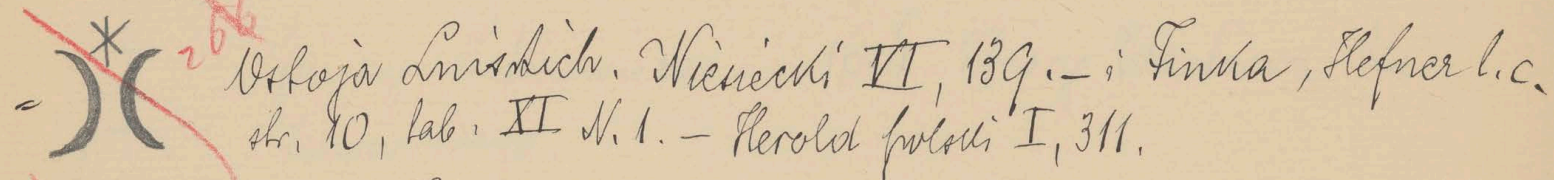 266
Ostoja Lniskich. Niesiecki VI, 139. – i Finka, Hefner l. c.
str. 10, tab. XI N. 1. – Herold polski I, 311.